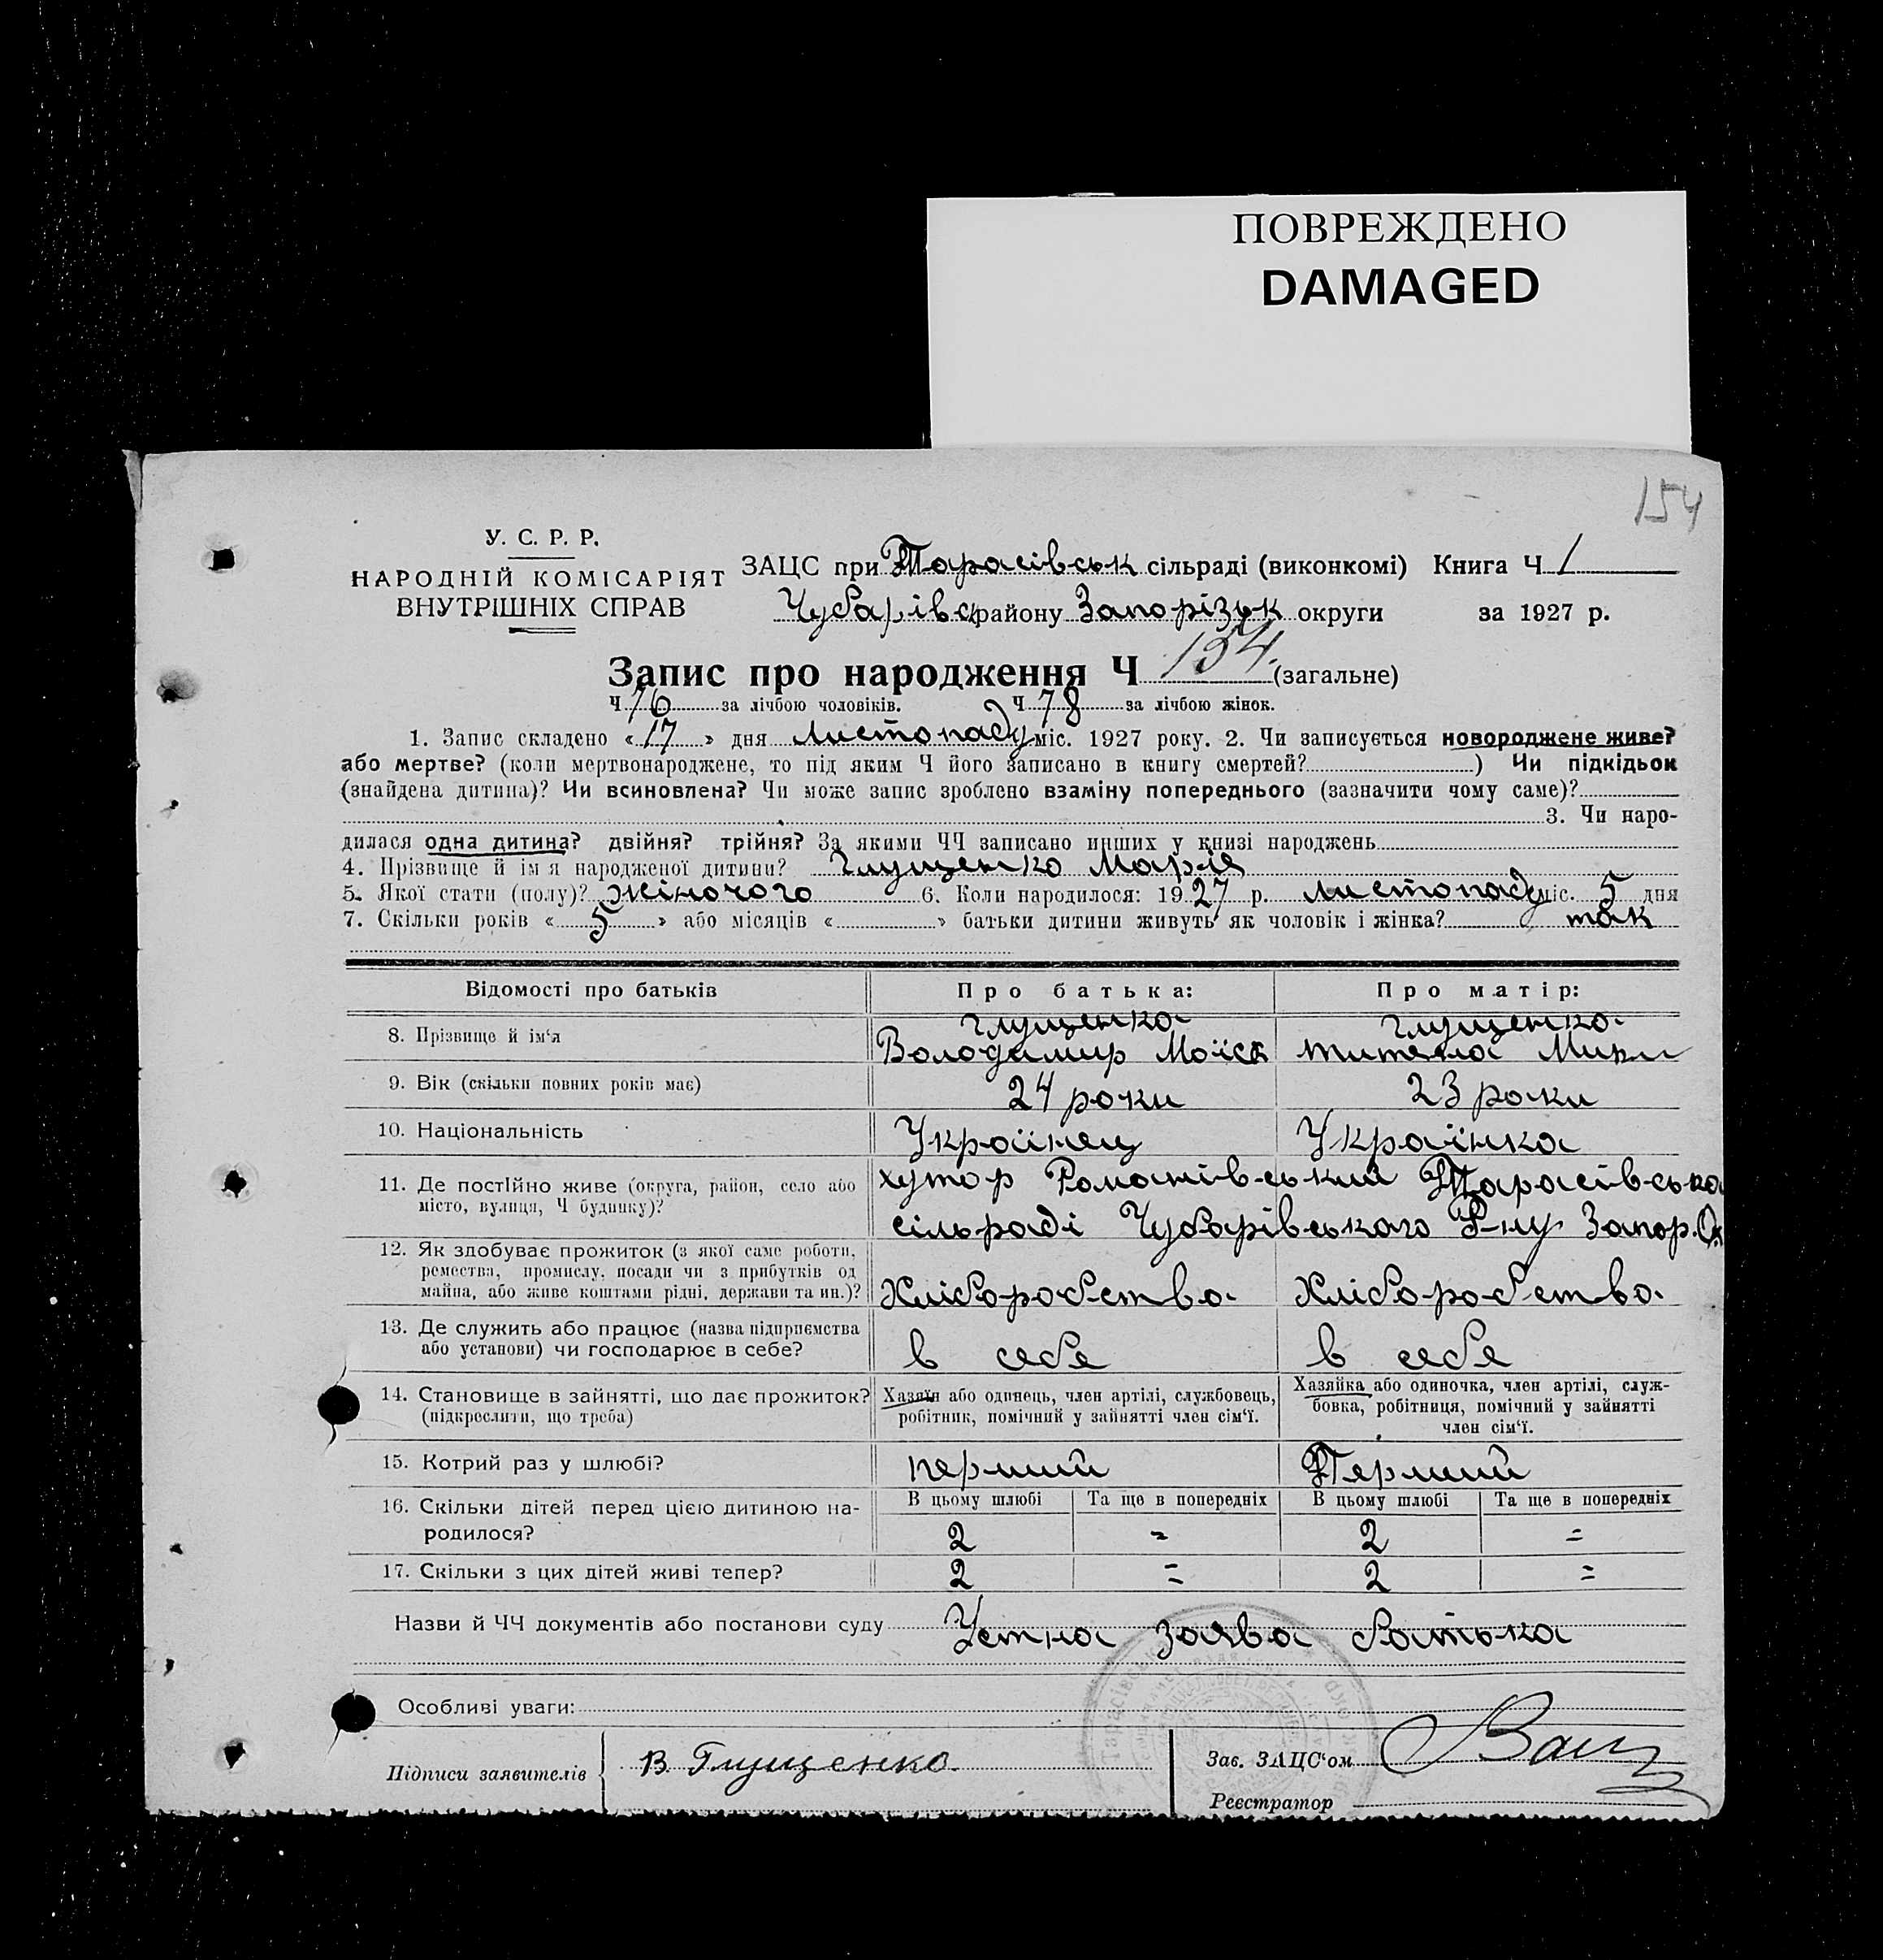 ПОВРЕЖДЕНО
DAMAGED
154
У. С. Р. Р.
НАРОДНІЙ КОМІСАРІЯТ
ВНУТРІШНІХ СПРАВ
ЗАЦС при Тарасівськ сільраді (виконкомі) Книга Ч 1
Чубарівс району Запорізьк округи за 1927 р.
Запис про народження Ч 154. (загальне)
Ч 76 за лічбою чоловіків. Ч 78 за лічбою жінок.
1. Запис складено «17» дня листопаду міс. 1927 року. 2. Чи записується новороджене живе?
або мертве? (коли мертвонароджене, то під яким Ч його записано в книгу смертей? ) Чи підкідьок
(знайдена дитина)? Чи всиновлена? Чи може запис зроблено взаміну попереднього (зазначити чому саме)?
3. Чи наро-
дилася одна дитина? двійня? трійня? За якими ЧЧ записано инших у книзі народжень
4. Прізвище й ім'я народженої дитини? Глущенко Марія
5. Якої стати (полу)? жіночого 6. Коли народилося: 1927 р. листопаду міс. 5 дня
7. Скільки років «5» або місяців « » батьки дитини живуть як чоловік і жінка? так
Відомості про батьків Про батька: Про матір:
8. Прізвище й ім'я Глущенко Володимир Мойсе Глущенко
9. Вік (скільки повних років має) 24 роки 23 роки
10. Національність Українец Українка
11. Де постійно живе (округа, район, село або хутор Романівський Тарасівська
місто, вулиця, Ч будинку)? сільраді Чубарівського Р-ну Запор. Ок
12. Як здобуває прожиток (з якої саме роботи,
ремества, промислу, посади чи з прибутків од
майна, або живе коштами рідні, держави та ин.)? Хліборобство. Хліборобство.
13. Де служить або працює (назва підприємства
або установи) чи господарює в себе? в себе в себе
14. Становище в зайнятті, що дає прожиток? Хазяїн або одинець, член артілі, службовець, Хазяйка або одиночка, член артілі, служ-
(підкреслити, що треба) робітник, помічний у зайнятті член сім'ї. бовка, робітниця, помічний у зайнятті
член сім'ї.
15. Котрий раз у шлюбі? перший Перший
16. Скільки дітей перед цією дитиною на- В цьому шлюбі Та ще в попередніх В цьому шлюбі Та ще в попередніх
родилося? 2 = 2 =
17. Скільки з цих дітей живі тепер? 2 = 2 =
Назви й ЧЧ документів або постанови суду Устна заява батька
Особливі уваги:
Підписи заявителів В Глущенко. Зав. ЗАЦС'ом
Реєстратор